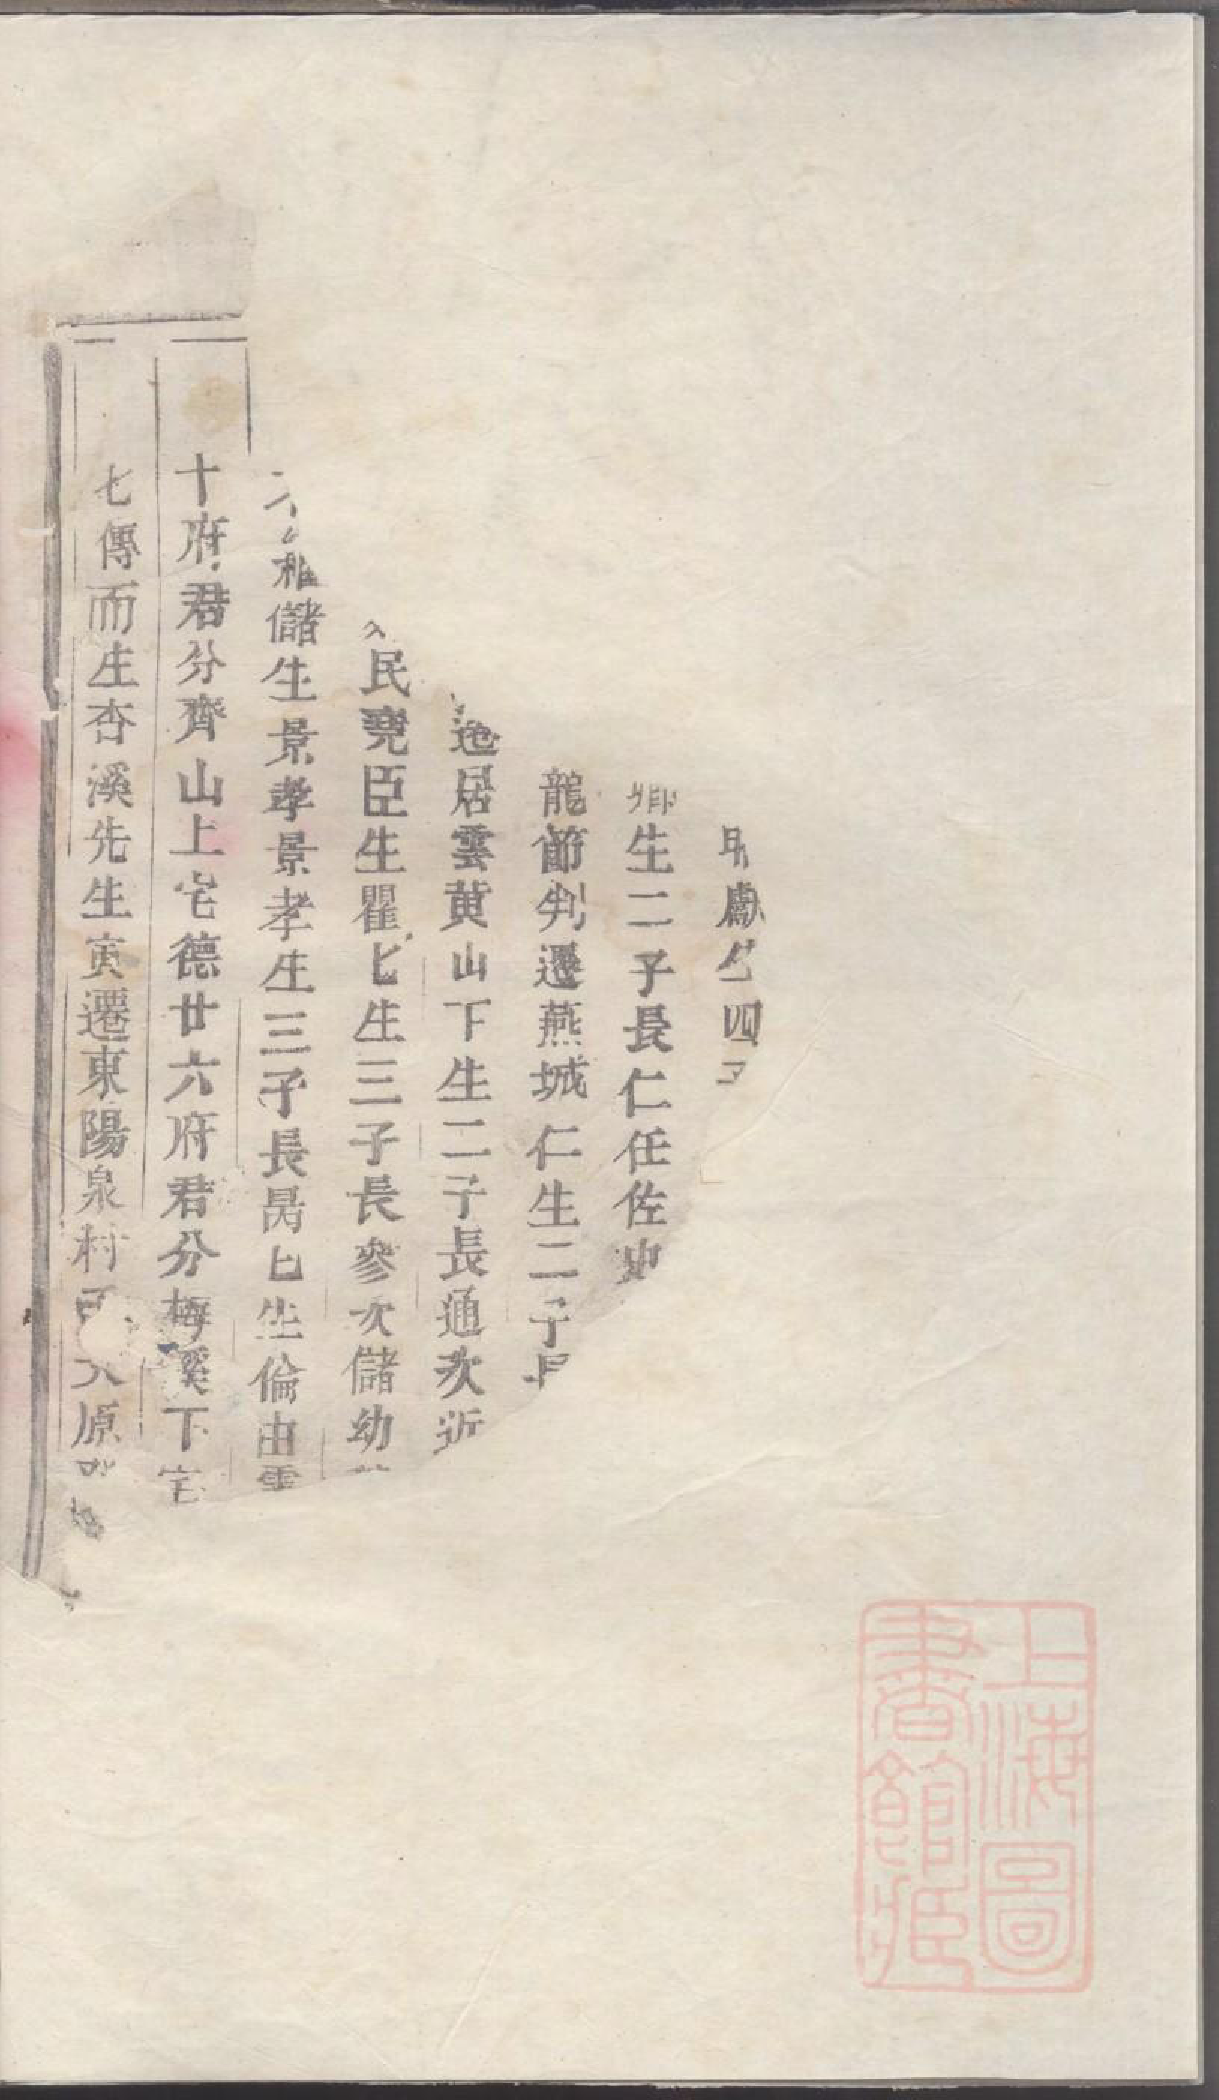 獻生四
卿生二子長仁任佐
龍節判遷燕城仁生二子長
迤居雲黄山下生二子長通次近
民堯臣生瞿匕生三子長參次儲幼
儲生景孝景孝生三子長昺匕生倫由雲
十府君分齊山上宅德廿六府君分梅溪下宅
七傳而生杏溪先生寅遷東陽泉村
原
上海圖書館藏